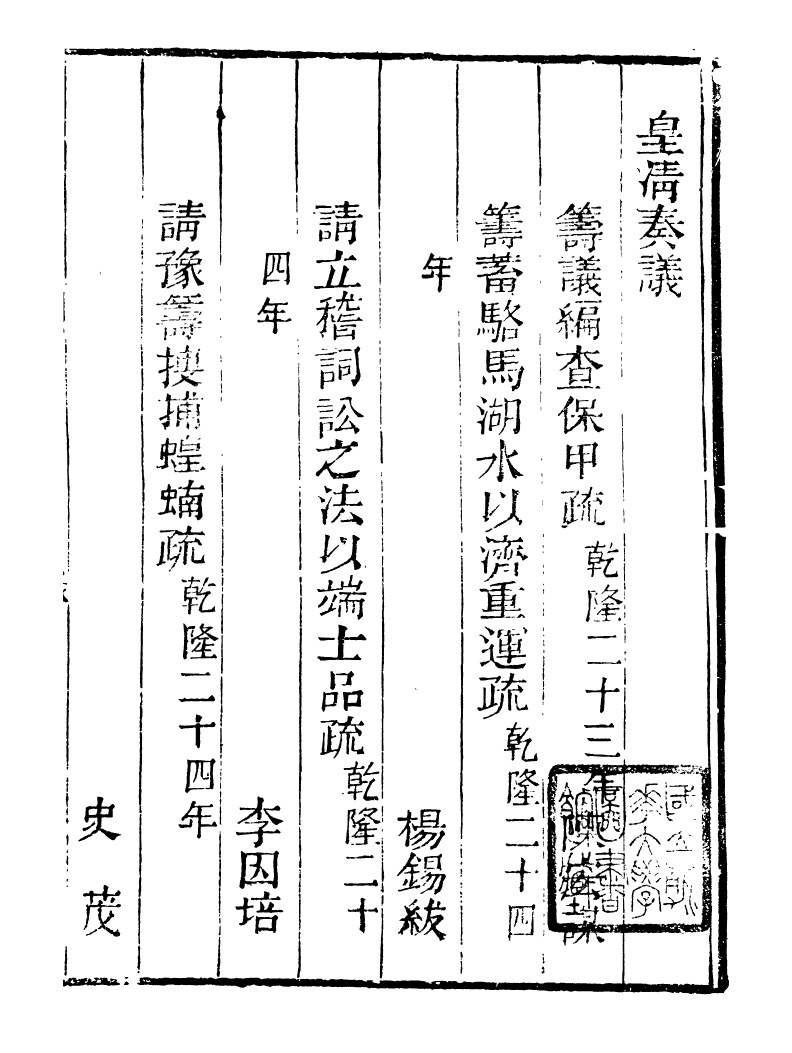 皇清奏議
籌議編查保甲疏 乾隆二十三年
籌蓄駱馬湖水以濟重運疏 乾隆二十四
年 楊錫紱
請立稽詞訟之法以端士品疏 乾隆二十
四年 李因培
請豫籌搜捕蝗蝻疏 乾隆二十四年
史茂